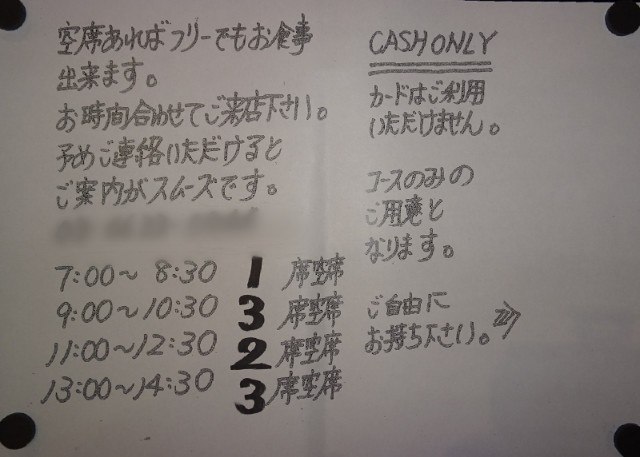 空席あればフリーでもお食事
出来ます。
お時間合わせてご来店下さい。
予めご連絡いただけると
ご案内がスムーズです。
7:00〜8:30 1席空席
9:00〜10:30 3席空席
11:00〜12:30 2席空席
13:00〜14:30 3席空席
CASH ONLY
カードはご利用
いただけません。
コースのみの
ご用意と
なります。
ご自由に
お持ち下さい。